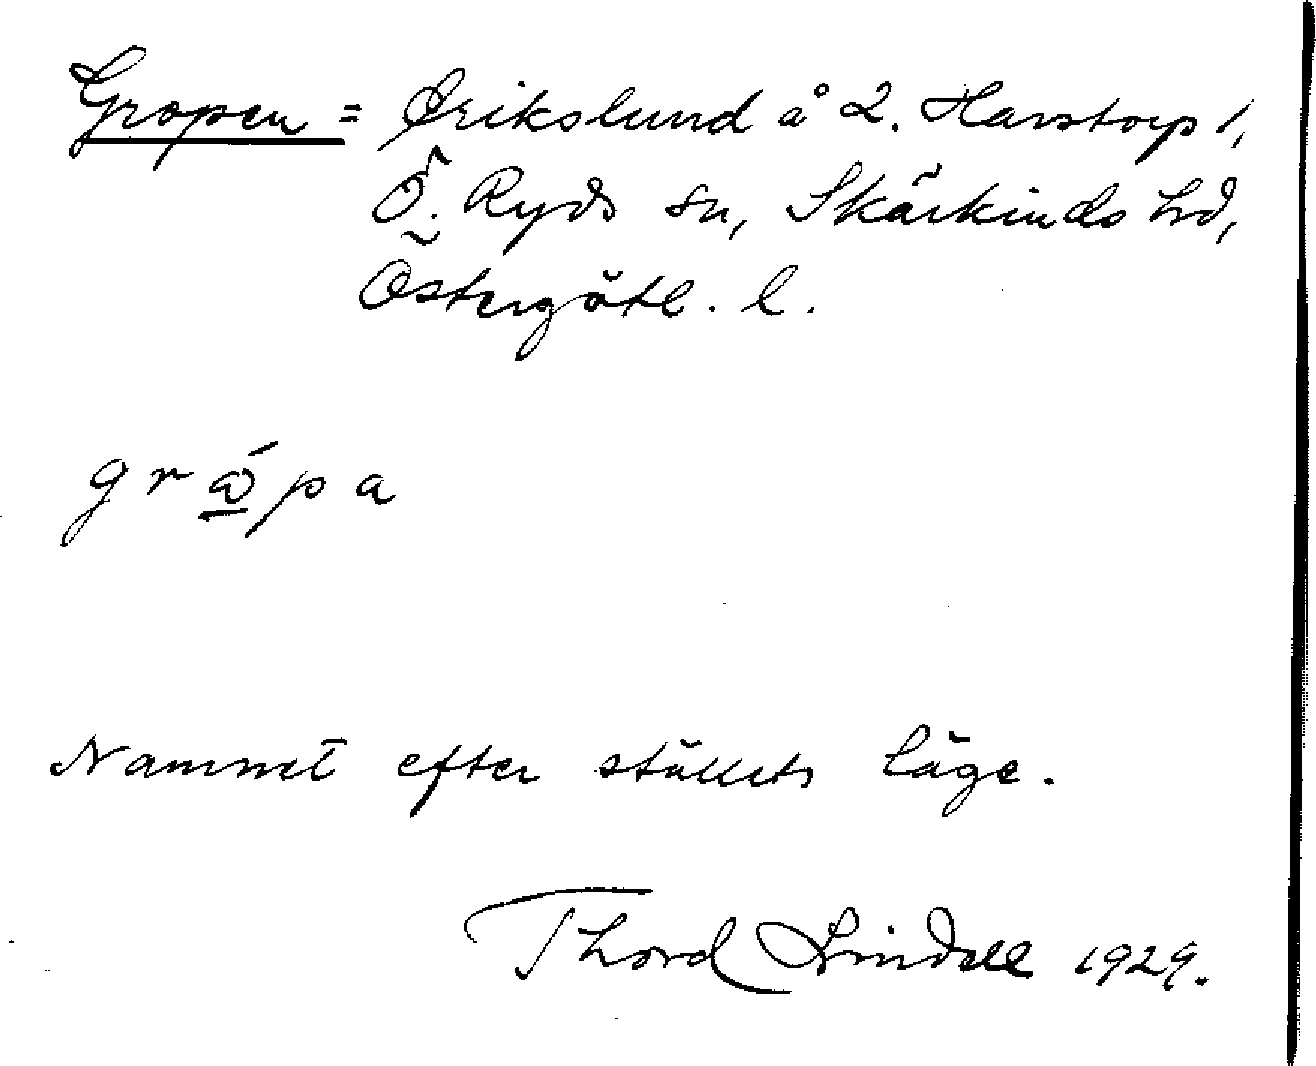 Gropen = Erikslund å L. Harstorp 1,
Ö. Ryds sn, Skärkinds hd,
Östergötl. l.
grώ̲pa
Namnet efter ställets läge.
Thord Lindell 1929.